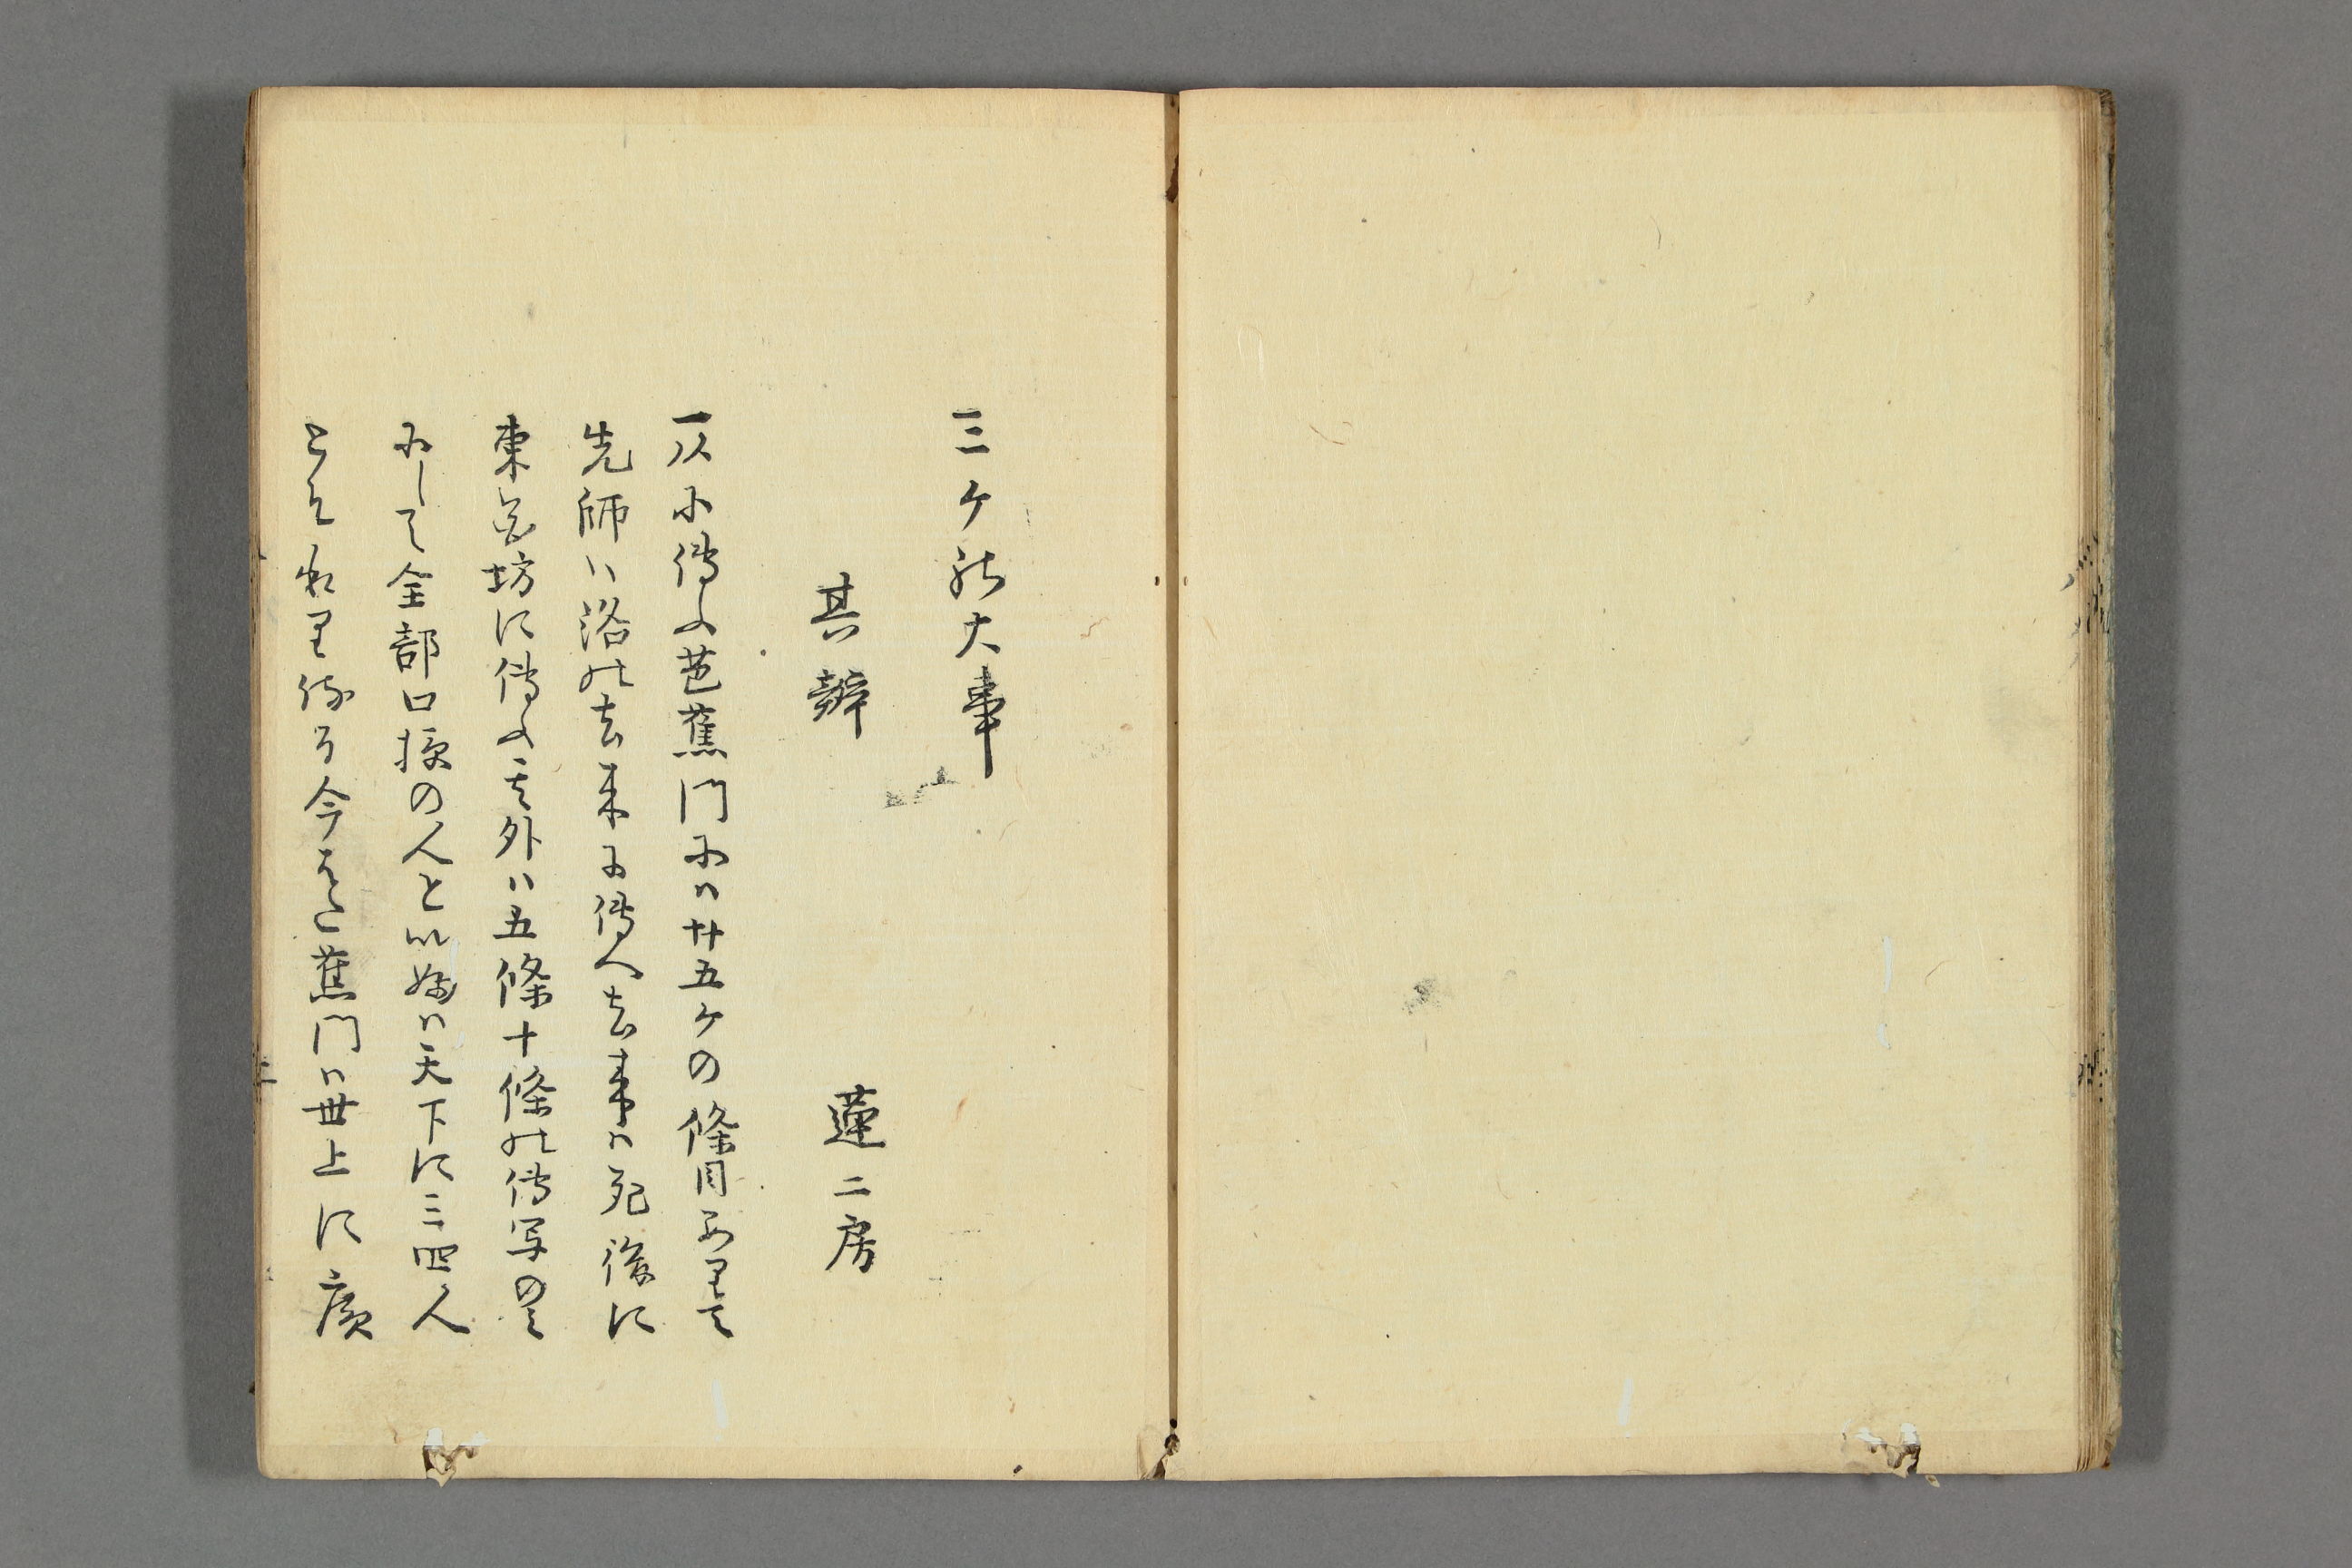 三ケ能大事
其辨
蓮二房
一爰に傳ふ芭蕉門にハ廿五ケの條目ありて
先師ハ洛の去来に傳へ去来ハ死後に
東花坊に傳ふ其外ハ五條十條の傳写のミ
にして全部口授の人といふハ天下に三四人
とそ わり侍る今はた蕉門ハ世上に廣